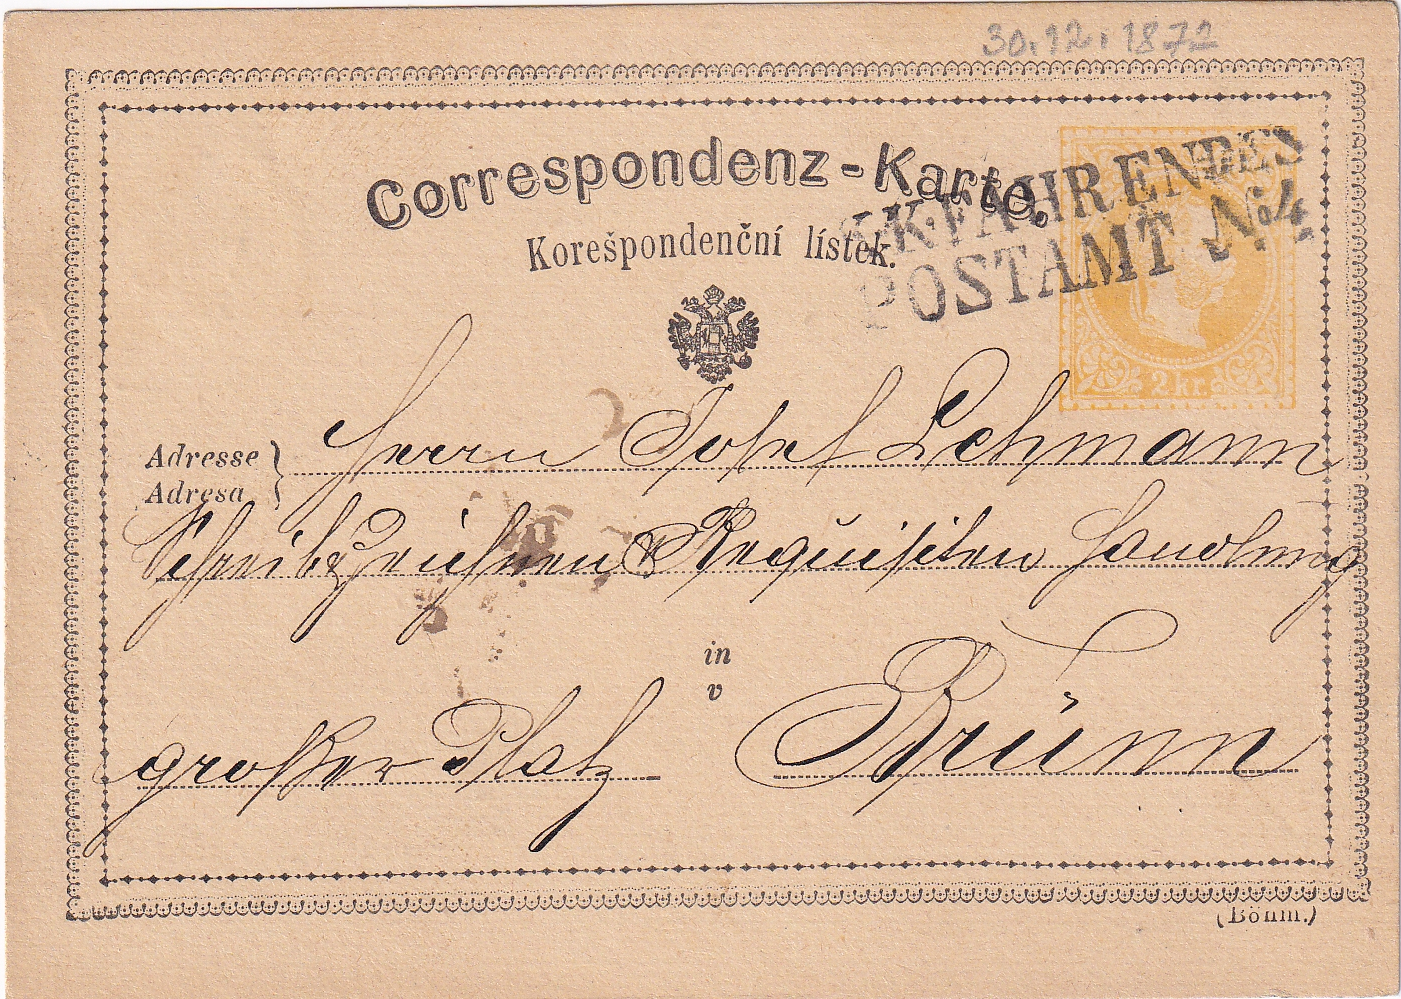 30.12.1872
Correspondenz-Karte.
Korešpondenční lístek.
K.K. FAHRENDES
POSTAMT No. 4
2 kr.
Adresse
Adresa
Herrn Josef Lehmann
Schreib & Zeichnen Requisiten Handlung
in
v
großer Platz Brünn
(Böhm.)